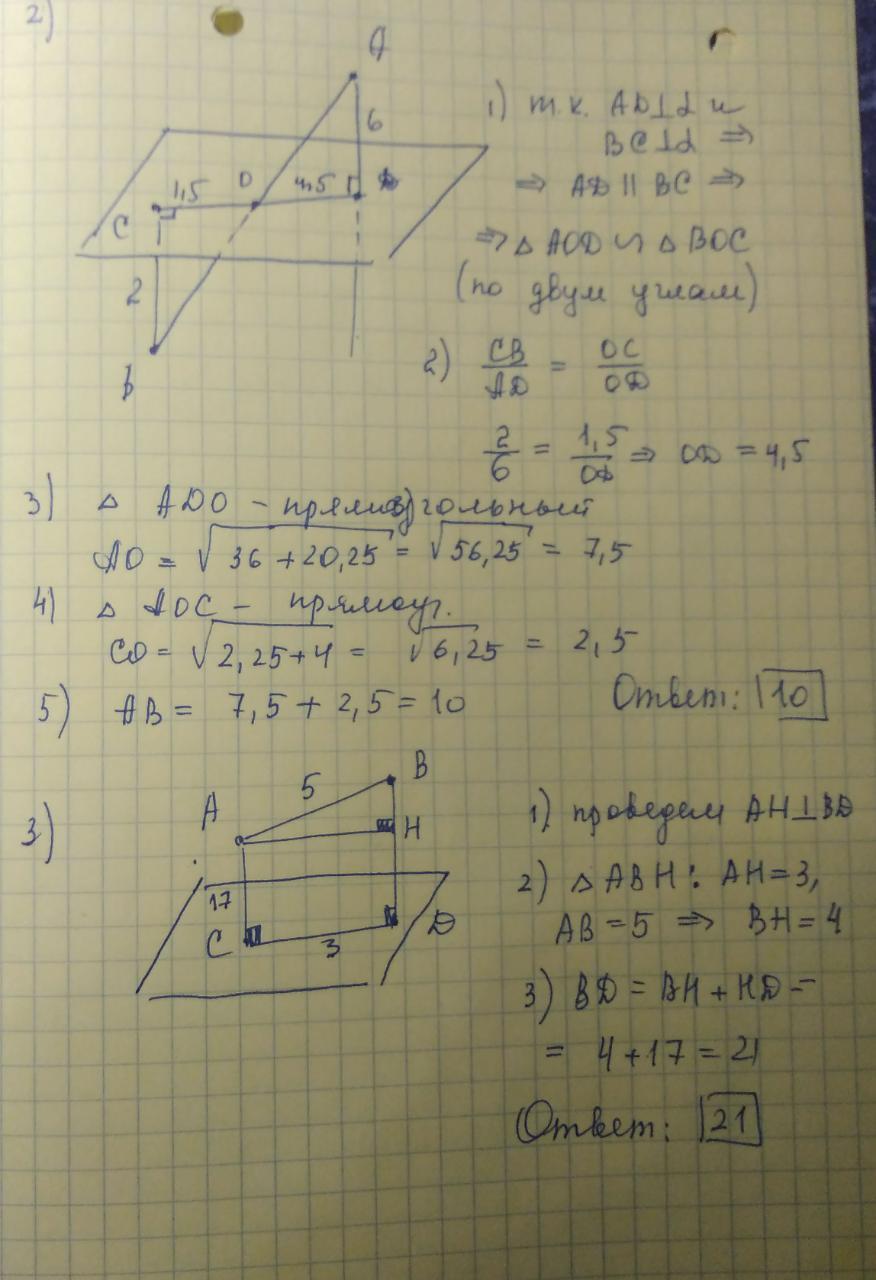 2)
A
6
1,5 O 4,5 D
C
2
B
1) т.к. AD⊥α и
BC⊥α ⇒
⇒ AD || BC ⇒
⇒ △ AOD ∽ △ BOC
(по двум углам)
2) CB/AD = OC/OD
2/6 = 1,5/OD ⇒ OD = 4,5
3) △ ADO – прямоугольный
AO = √36 + 20,25 = √56,25 = 7,5
4) △ AOC – прямоуг.
CO = √2,25+4 = √6,25 = 2,5
5) AB = 7,5 + 2,5 = 10
Ответ: 10
3)
5 B
A
H
17
C 3 D
1) проведем AH⊥BD
2) △ ABH: AH=3,
AB = 5 ⇒ BH = 4
3) BD = BH + HD =
= 4+17 = 21
Ответ: 21